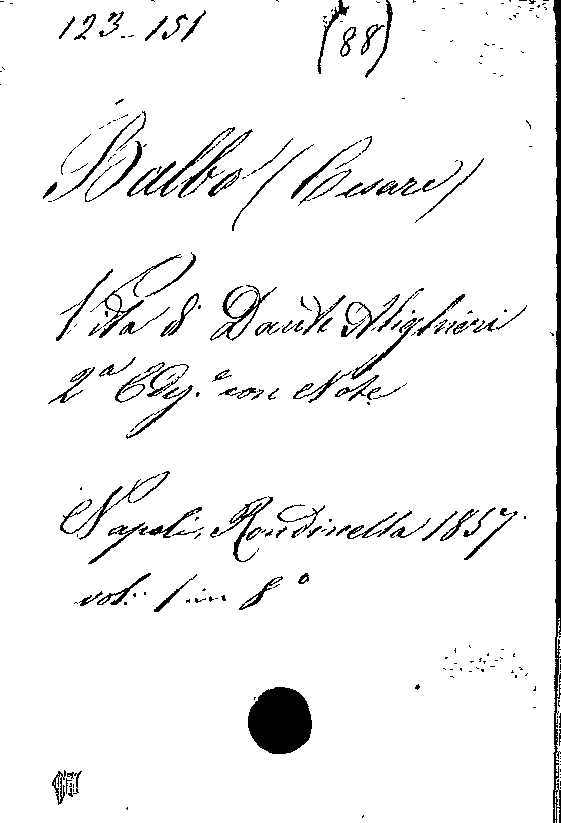 123-151 (88)
Balbo (Cesare)
Vita di Dante Alighieri
2ª Ediz.e con Note
Napoli, Rondinella 1857.
vol: 1 in 8°